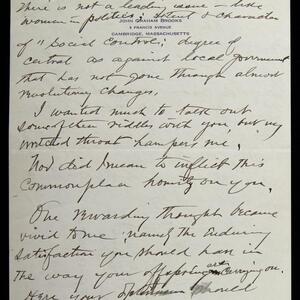 there is not a leading issue – like
women in politics; extent & character
JOHN GRAHAM BROOKS
8 FRANCIS AVENUE
CAMBRIDGE, MASSACHUSETTS
of "Social Control"; degree of
central as against local government
that has not gone through almost
revolutionary changes.
I wanted much to talk out
some of these riddles with you, but my
wretched throat hampers me.
Nor did I mean to inflict this
commonplace homily on you.
One rewarding thought became
vivid to me, namely the enduring
satisfaction you should has in
the way your offspring are carrying on.
Here your should